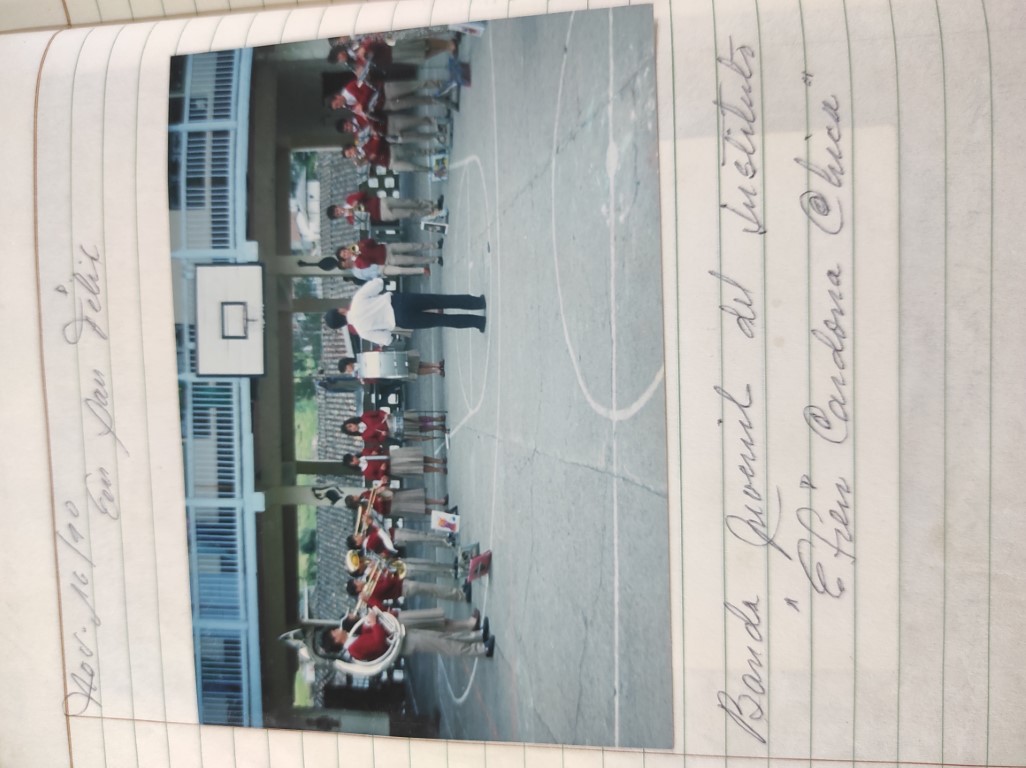 Nov. 16/90
En San Félix
Banda Juvenil del Instituto
"Efrén Cardona Chica"